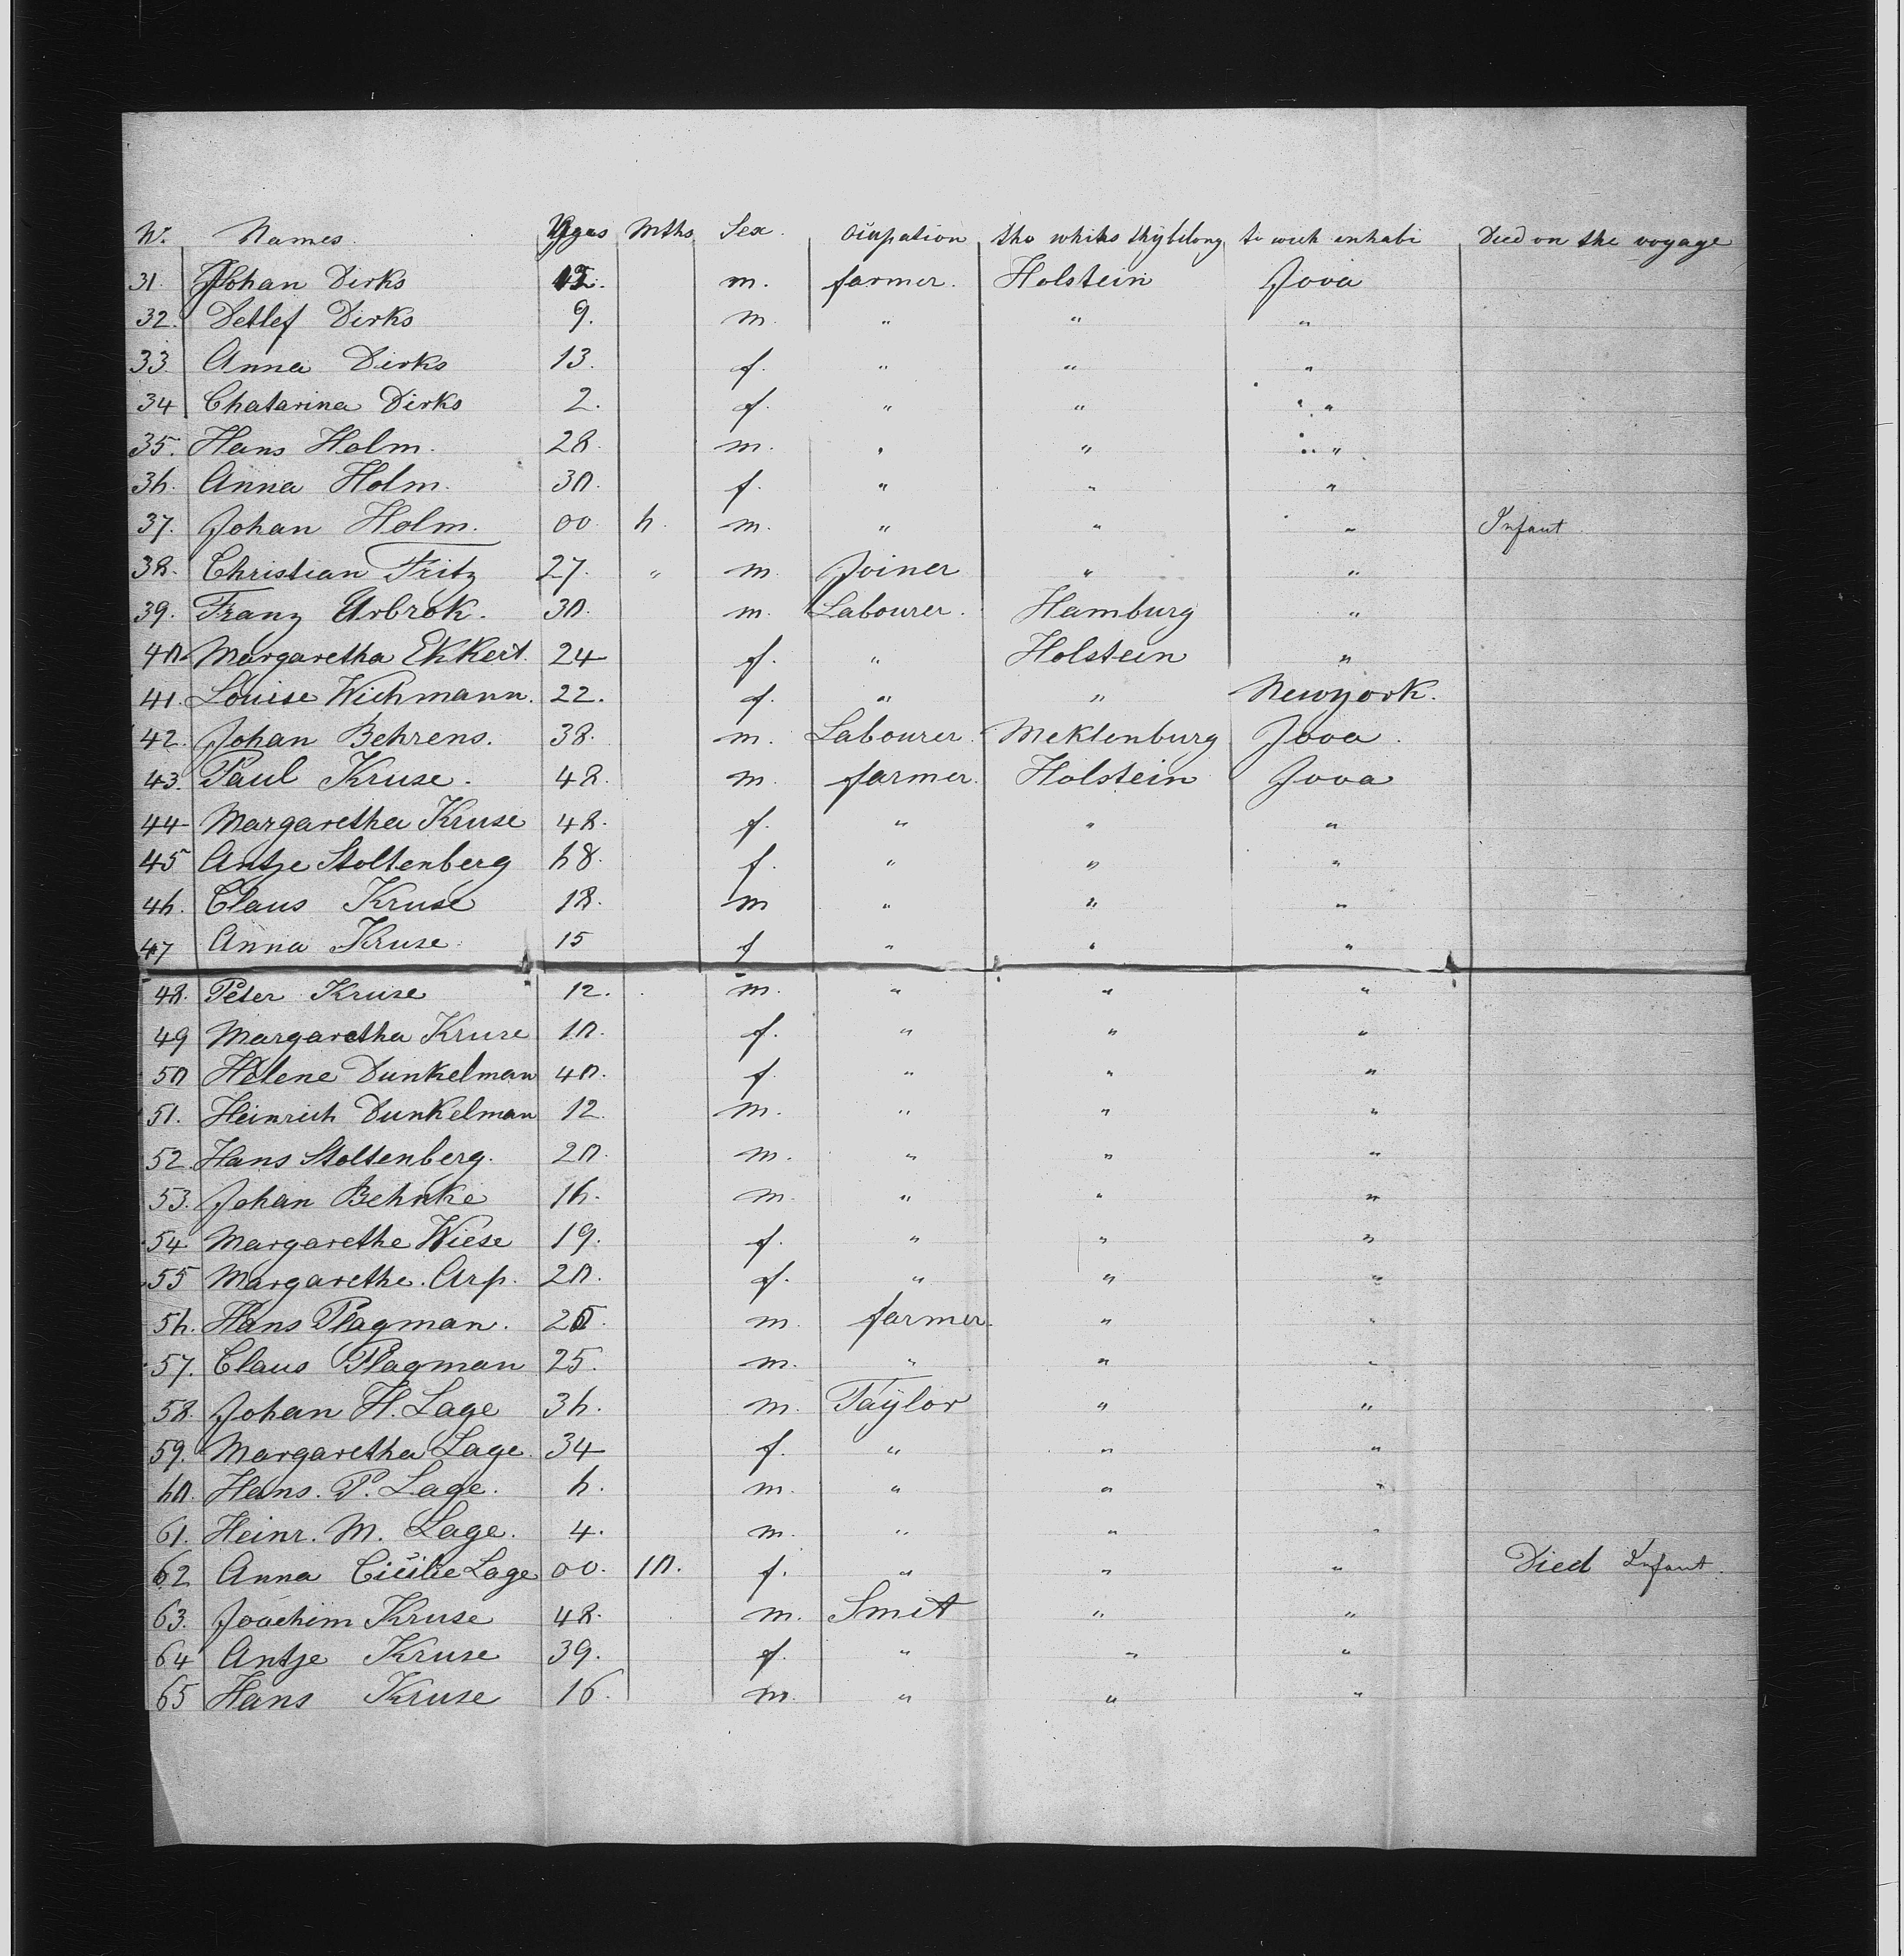 No. Names. Ages Mths Sex. Ocupation tho whihs thÿ belong to wich enhabi Died on the voyage
31. Johan Dirks 12. m. farmer. Holstein Jova
32. Detlef Dirks 9. m. " " "
33. Anna Dirks 13. f. " " "
34 Chatarina Dirks 2. f. " " "
35. Hans Holm. 28. m. " " "
36. Anna Holm. 30. f. " " "
37. Johan Holm. 00. 6. m. " " " Infant
38. Christian Fritz 27. " m. Joiner " "
39. Franz Arbrok. 30. m. Labourer. Hamburg "
40. Margaretha Ekkert. 24 f. " Holstein "
41. Louise Wichmann. 22. f. " " Newyork.
42. Johan Behrens. 38. m. Labourer. Meklenburg Jova.
43. Paul Kruse. 48. m. farmer. Holstein Jova
44 Margaretha Kruse 48. f. " " "
45 Antje Stoltenberg 68. f. " " "
46. Claus Kruse 18. m " " "
47 Anna Kruse. 15 f " " "
48. Peter Kruse 12. m. " " "
49 Margaretha Kruse 10. f. " " "
50 Helene Dunkelman 40. f. " " "
51. Heinrich Dunkelman 12. m. " " "
52. Hans Stoltenberg. 20. m. " " "
53. Johan Behnke 16. m. " " "
54 Margarethe Wiese 19. f. " " "
55 Margarethe Arp. 20. f. " " "
56. Hans Plagman. m. farmer. " "
57. Claus Plagman 25. m. " " "
58. Johan H. Lage 36. m. Taÿlor " "
59. Margaretha Lage. 34 f. " " "
60. Hans. P. Lage. 6. m. " " "
61. Heinr. M. Lage. 4. m. " " "
62 Anna Cicilie Lage 00. 10. f. " " " Died Infant.
63. Joachim Kruse 48. m. Smit " "
64 Antje Kruse 39. f. " " "
65 Hans Kruse 16. m. " " "